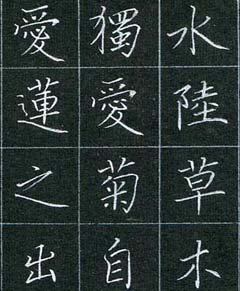 水陸草木
獨愛菊自
愛蓮之出